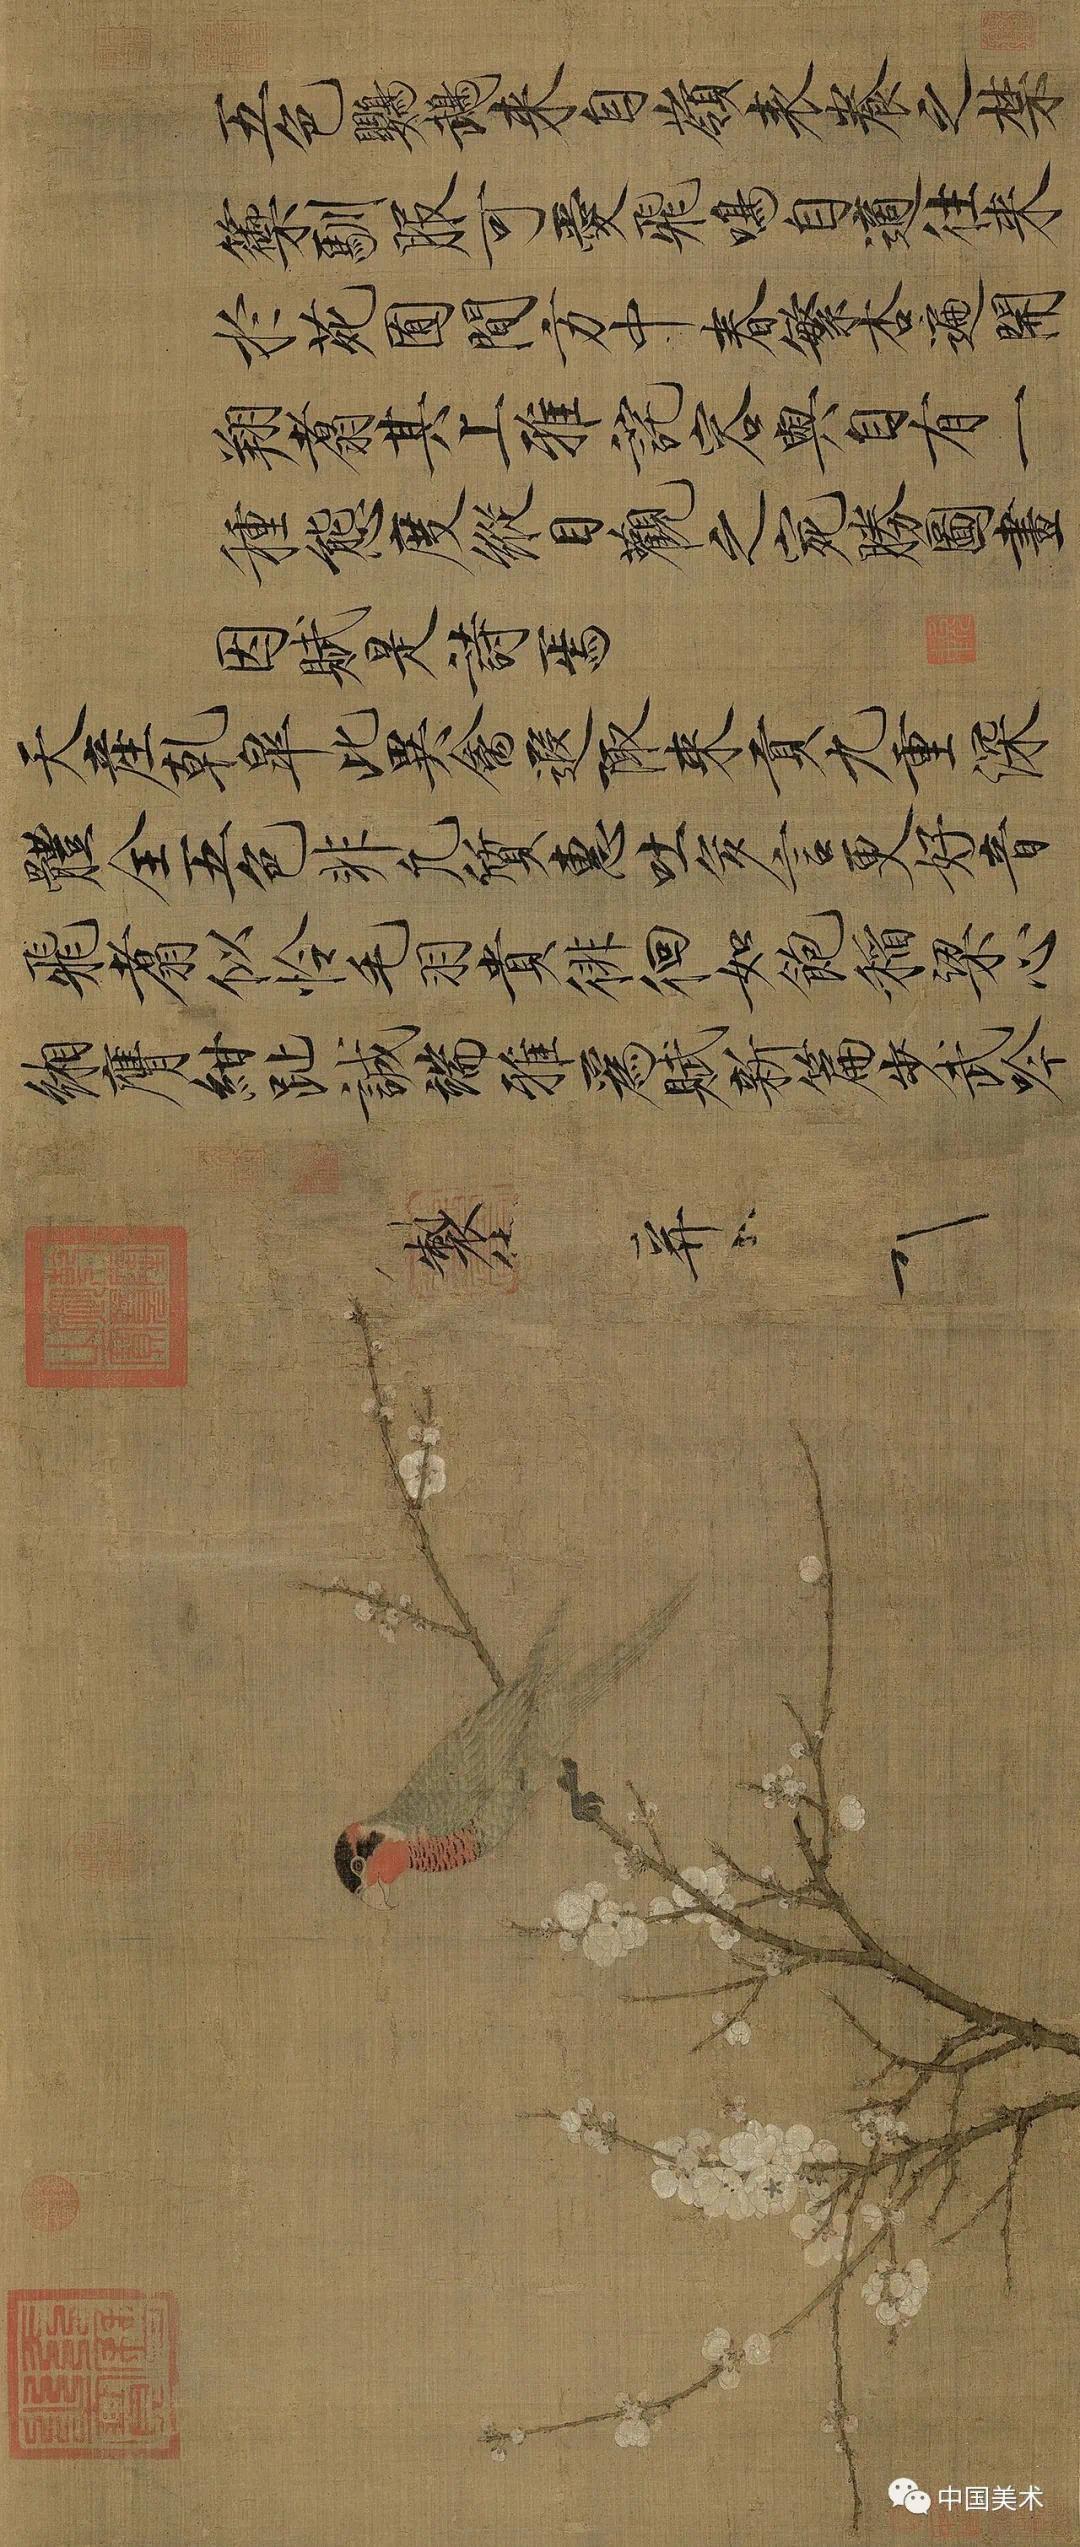 五色鸚鵡來自嶺表養之禁
籞馴服可愛飛鳴自適往來
於苑囿間方中春繁杏遍開
翔翥其上雅詫容與自有一
種態度縱目觀之宛勝圖畫
因賦是詩焉
天產乾皋此異禽遐陬來貢九重深
體全五色非凡質惠吐多言更好音
飛翥似憐毛羽貴徘徊如飽稻粱心
緗膺紺趾誠端雅為賦新篇步武吟
製 并
中国美术